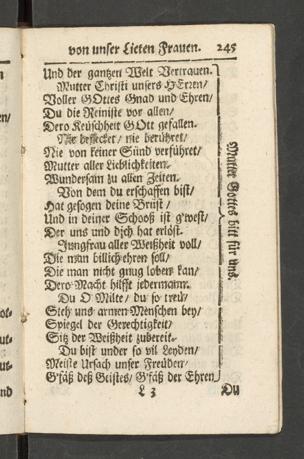 von unser Lieten Frauen. 245
Und der gantzen Welt Vertrauen.
Mutter Christi unsers HErren/
Voller GOttes Gnad und Ehren/
Du die Reiniste vor allen/
Dero Keuschheit GOtt gefallen.
Nie beflecket/ nie berühret/
Nie von keiner Sünd verführet/
Mutter aller Lieblichkeiten.
Wundersam zu allen Zeiten.
Von dem du erschaffen bist/
Hat gesogen deine Brüst/
Und in deiner Schooß ist g'west/
Der uns und dich hat erlöst.
Jungfrau aller Weißheit voll/
Die man billich ehren soll/
Die man nicht gnug loben kan/
Dero Macht hilfft jedermann.
Du O Milte/ du so treu/
Steh uns armen Menschen bey/
Spiegel der Gerechtigkeit/
Sitz der Weißheit zubereit.
Du bist under so vil Leyden/
Meiste Ursach unser Freuden/
G'fäß deß Geistes/ G'fäß der Ehren
Mutter Gottes bitt für uns.
L 3 Du